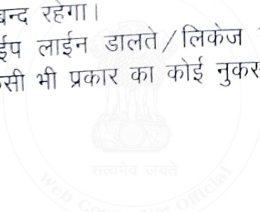 बन्द रहेगा।
ईप लाईन डालते/लिकेज
सी भी प्रकार का कोई नुकस
सत्यमेव जयते
Web Copy. Not Official